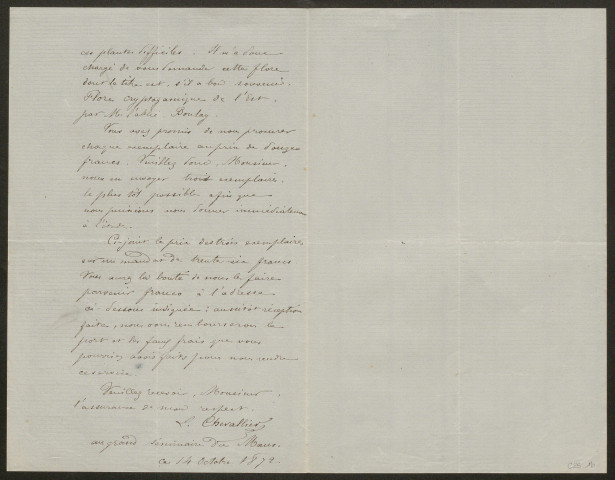 ces plantes difficiles. Il m'a donc
chargé de vous demander cette flore
dont le titre est, s'il a bon souvenir:
Flore cryptogamique de l'Est,
par Mr l'abbé Boulay.
Vous avez promis de nous procurer
chaque exemplaire au prix de douze
francs. Veuillez donc, Monsieur,
nous en envoyer trois exemplaires
le plus tôt possible afin que
nous puissions nous donner immédiatement
à l'étude.
Ci-joint le prix des trois exemplaires
sur un mandat de trente-six francs
Vous aurez la bonté de nous les faire
parvenir franco à l'adresse
ci-dessous indiquée; aussitôt réception
faite, nous vous rembourserons le
port et les faux frais que vous
pourriez avoir faits pour nous rendre
ce service.
Veuillez recevoir, Monsieur,
l'assurance de mon respect.
L. Chevallier
au grand séminaire du Mans.
ce 14 octobre 1872.